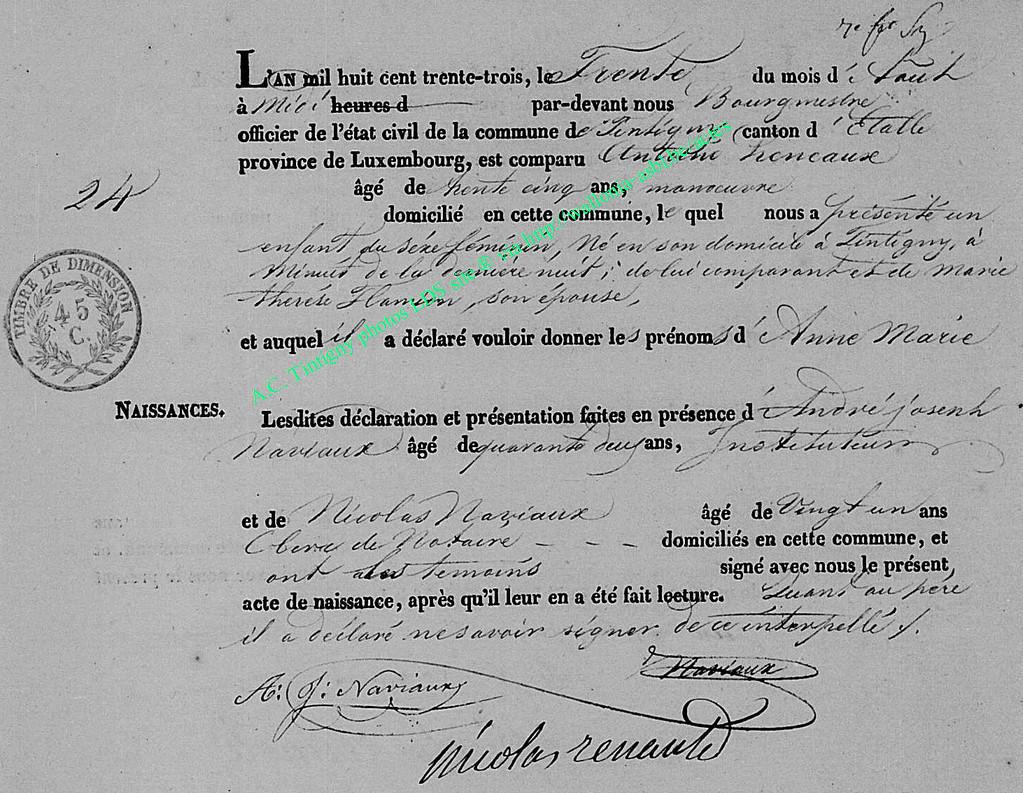 L'AN mil huit cent trente-trois, le Trente du mois d' Août
à Midi heures d par-devant nous Bourgmestre
officier de l'état civil de la commune de Tintigny canton d' Etalle
province de Luxembourg, est comparu Antoine
âgé de trente cinq ans, manoeuvre
domicilié en cette commune, le quel nous a présenté un
enfant du séxe féminin, Né en son domicile à Tintigny, à
Minuit de la derniere nuit; de lui comparant et de Marie
thérése son épouse,
et auquel il a déclaré vouloir donner les prénoms d' Anne Marie
24
TIMBRE DE DIMENSION
45
C.
NAISSANCES.
Lesdites déclaration et présentation faites en présence d' André joseph
Naviaux âgé de quarante deux ans, Instituteur
et de Nicolas Naviaux âgé de Vingt un ans
Clerc de Notaire - - - domiciliés en cette commune, et
ont les témoins signé avec nous le présent,
acte de naissance, après qu'il leur en a été fait lecture. Quant au père
il a déclaré ne savoir signer de ce interpellé
A: J: Naviaux
Naviaux
Nicolas renauld
A.C. Tintigny photos LDS snc